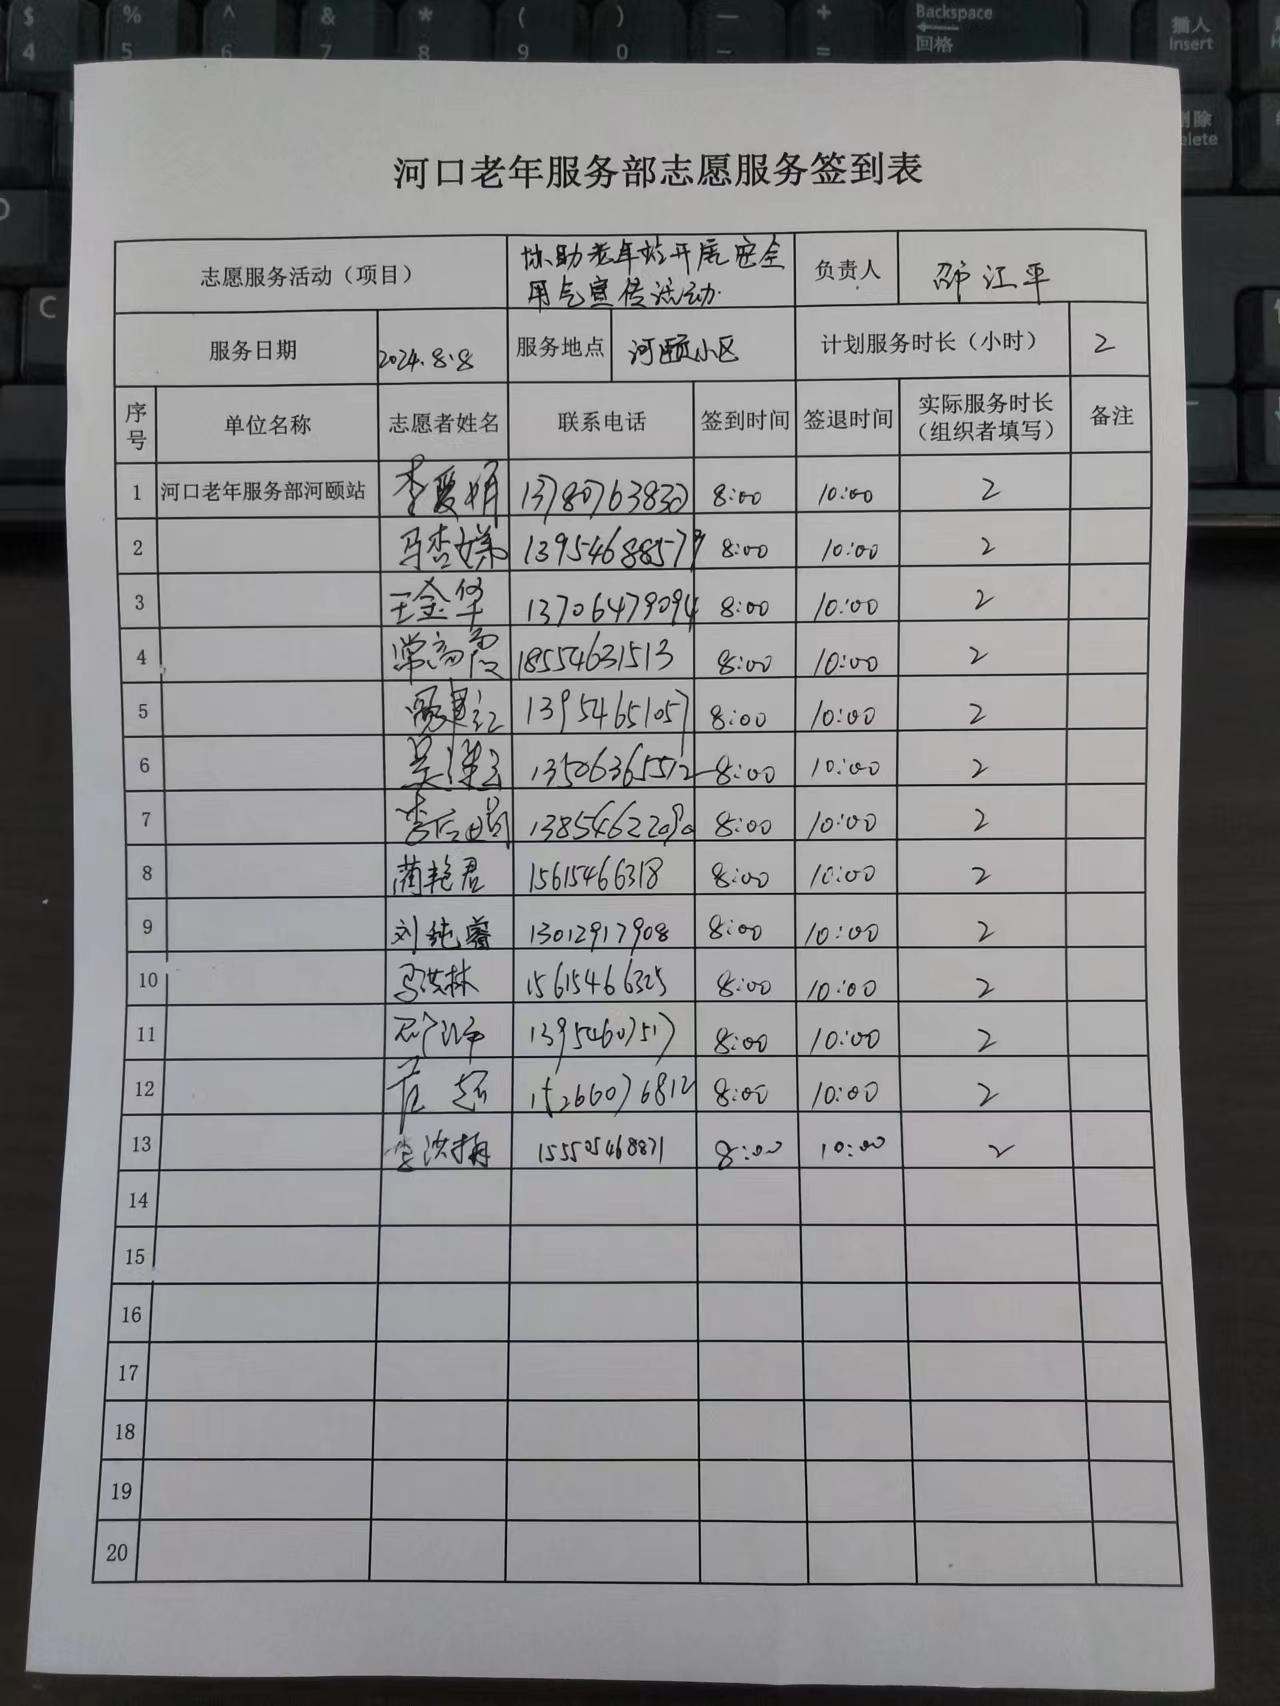 $ % ^ & * ( ) — + Backspace 插入
4 5 6 7 8 9 0 - = 回格 Insert
C
河口老年服务部志愿服务签到表
志愿服务活动（项目） 协助老年站开展安全用气宣传活动 负责人 邵江平
服务日期 2024.8.8 服务地点 河颐小区 计划服务时长（小时） 2
序号 单位名称 志愿者姓名 联系电话 签到时间 签退时间 实际服务时长（组织者填写） 备注
1 河口老年服务部河颐站 李爱娟 13780763830 8:00 10:00 2
2 马杏娣 13954688579 8:00 10:00 2
3 王金华 13706479094 8:00 10:00 2
4 常高霞 18554631513 8:00 10:00 2
5 13954651057 8:00 10:00 2
6 13506365512 8:00 10:00 2
7 13854622090 8:00 10:00 2
8 蔺艳君 15615466318 8:00 10:00 2
9 刘纯睿 13012917908 8:00 10:00 2
10 马洪林 15615466325 8:00 10:00 2
11 13954607517 8:00 10:00 2
12 15266076812 8:00 10:00 2
13 李洪梅 155505468871 8:00 10:00 2
14
15
16
17
18
19
20